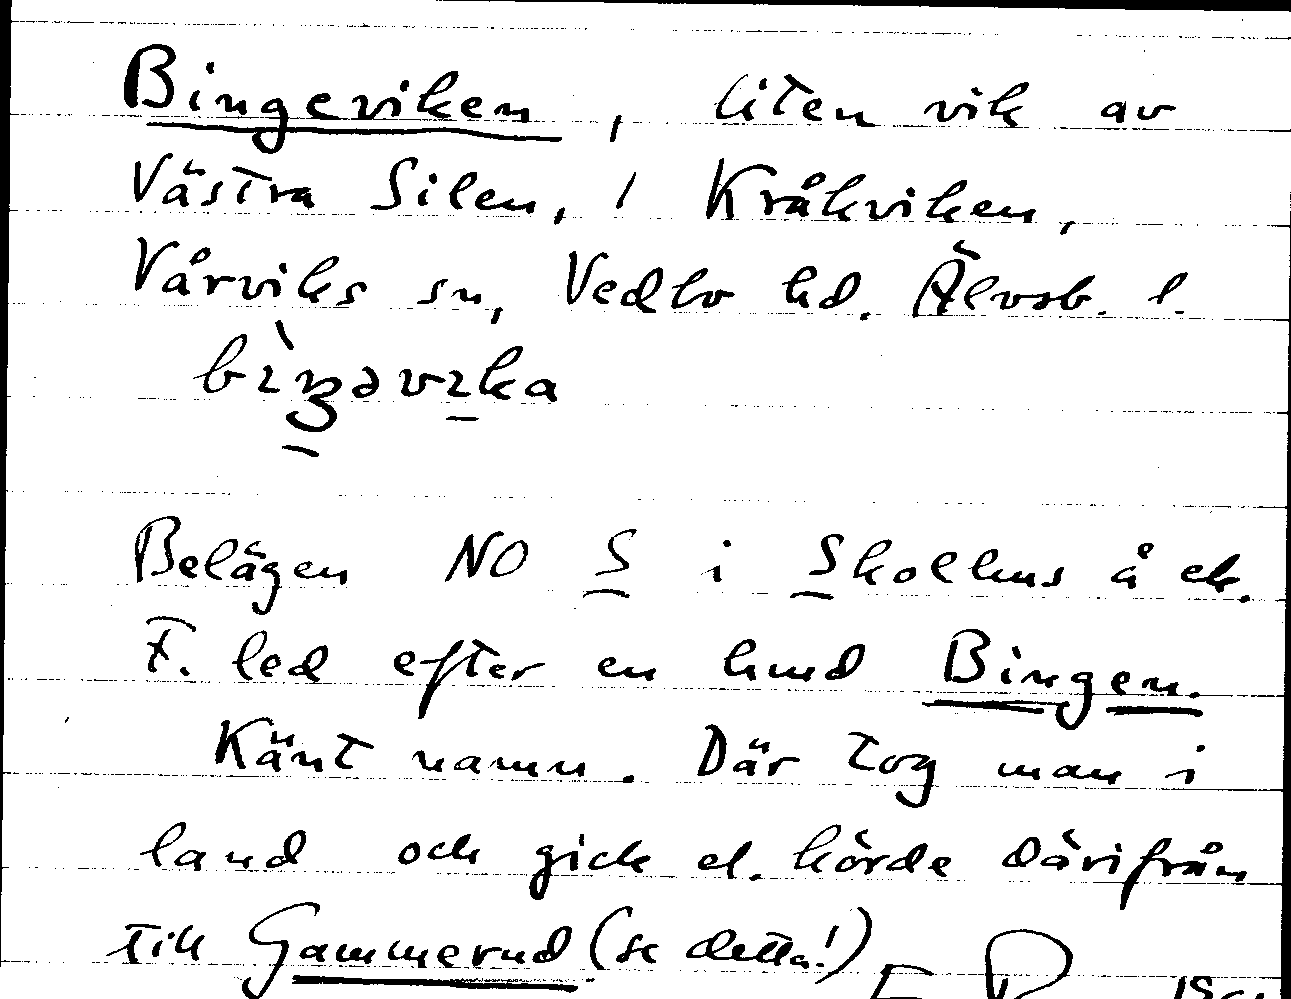 Bingeviken, liten vik av
Västra Silen, i Kråkviken,
Vårviks sn, Vedbo hd. Älvsb. l.
bìŋəvɪka
Belägen NO S i Skollhus å ek.
F. led efter en hund Bingen.
Känt namn. Där tog man i
land och gick el. körde därifrån
till Gammerud (se detta!)